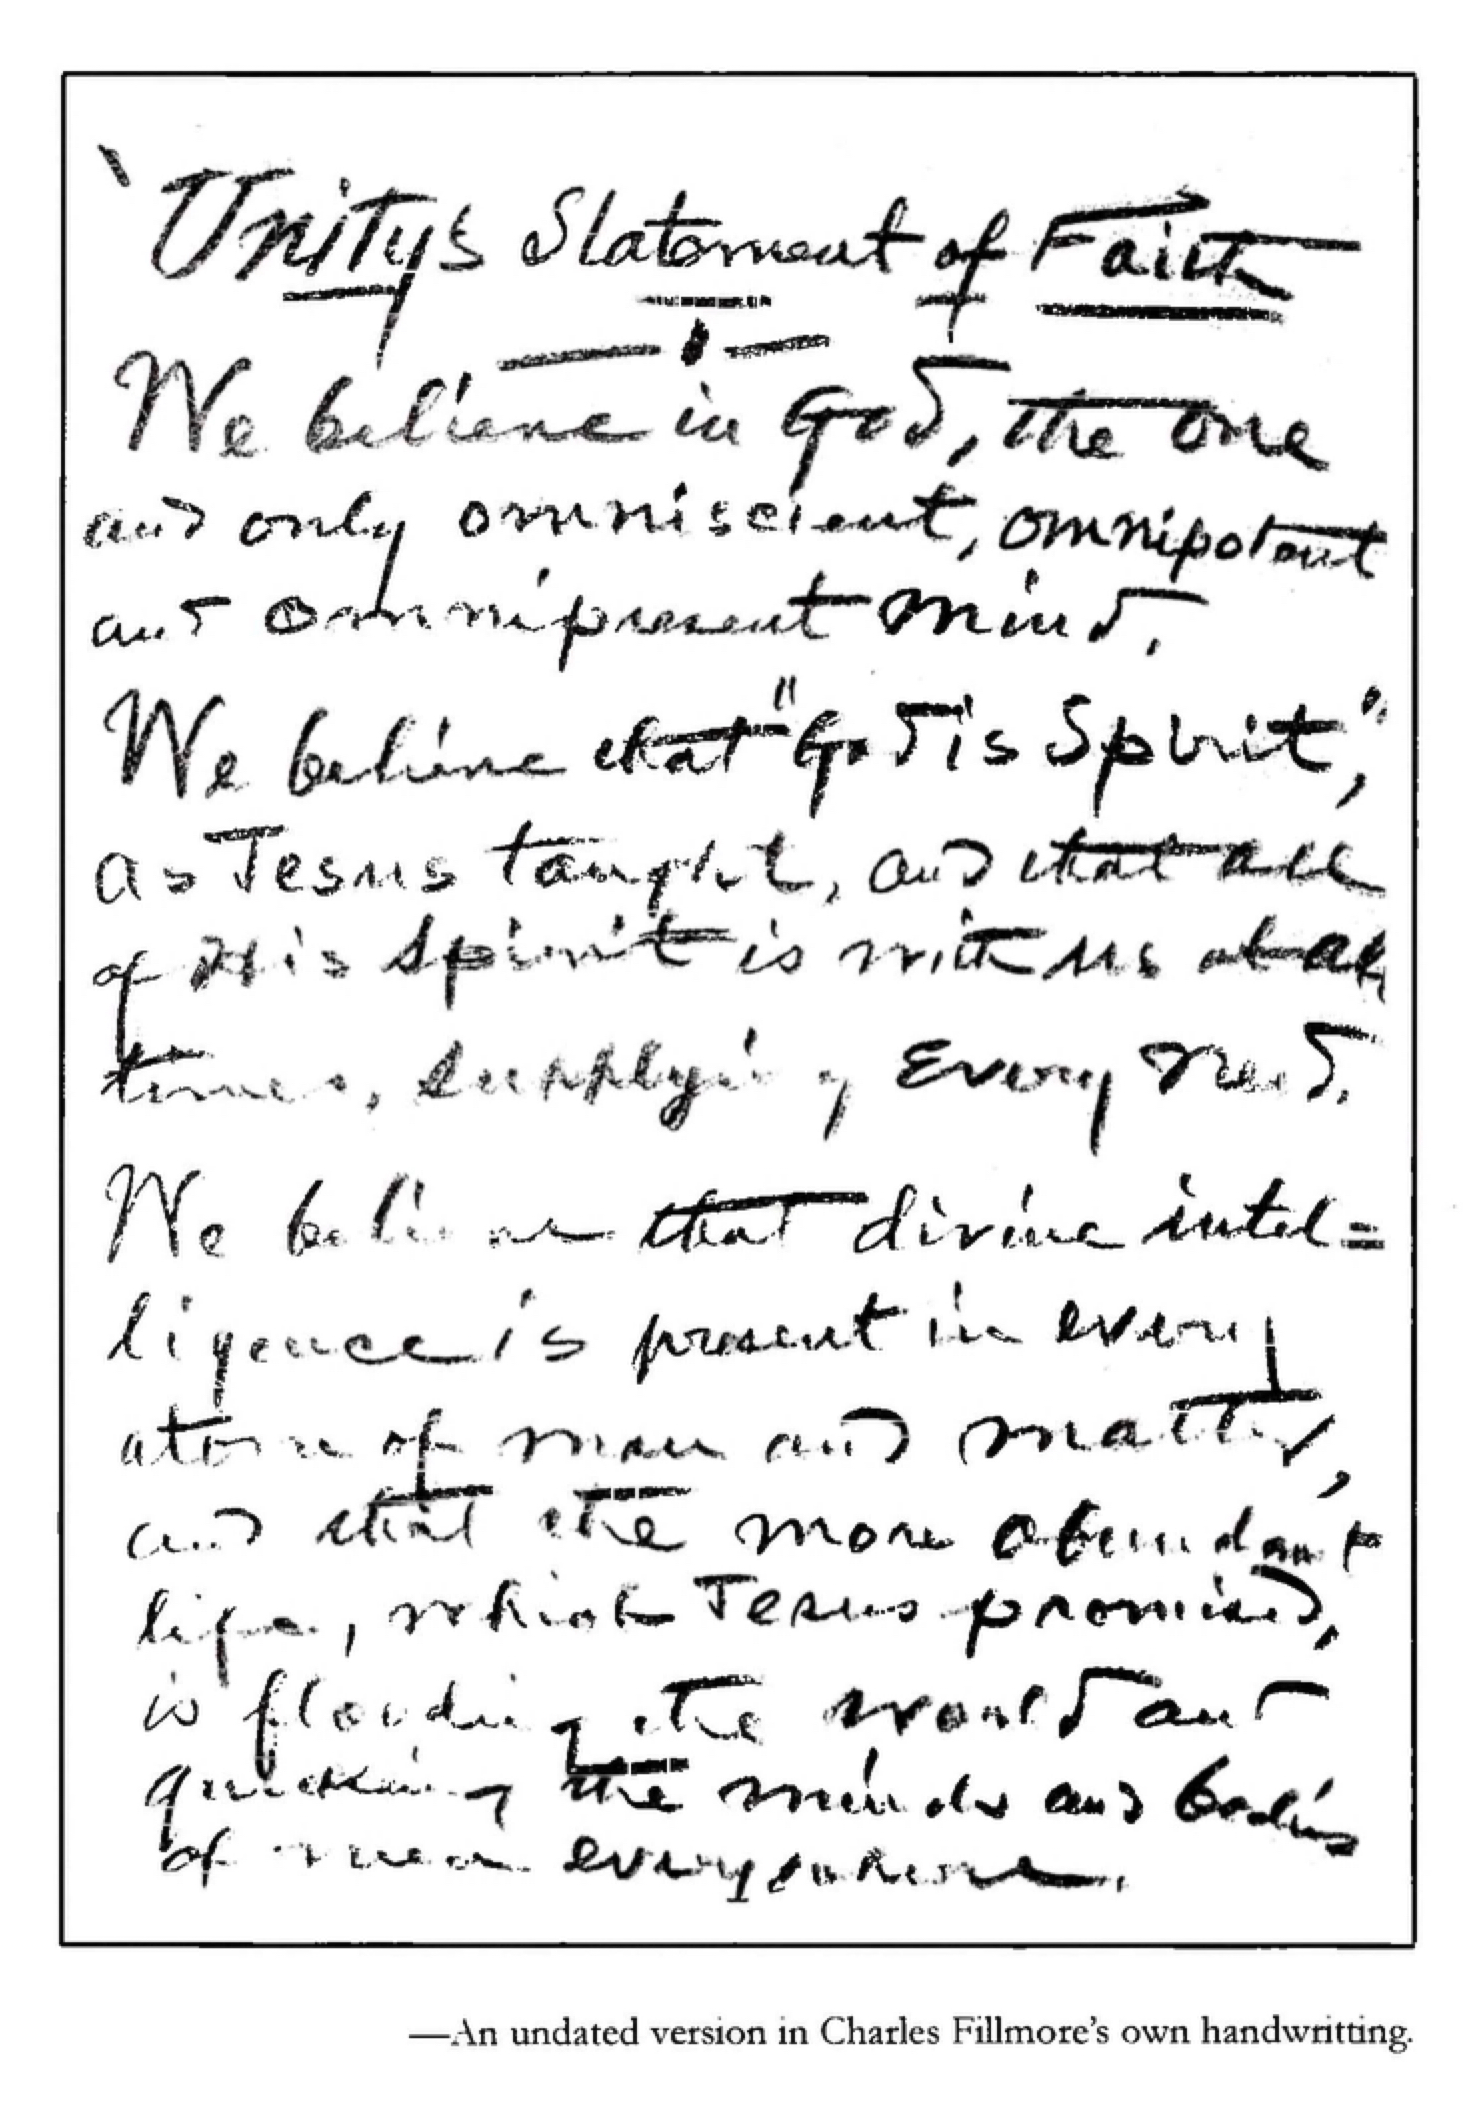 Unity's Statement of Faith
We believe in God, the one
and only omniscient, omnipotent
and omnipresent mind.
We believe that "God is Spirit,"
as Jesus taught, and that all
of His spirit is with us at all
times, supplying every need.
We believe that divine intel=
ligence is present in every
atom of man and matter,
and that the more abundant
life, which Jesus promised,
is flooding the world and
quickening the minds and bodies
of men everywhere.
—An undated version in Charles Fillmore's own handwritting.